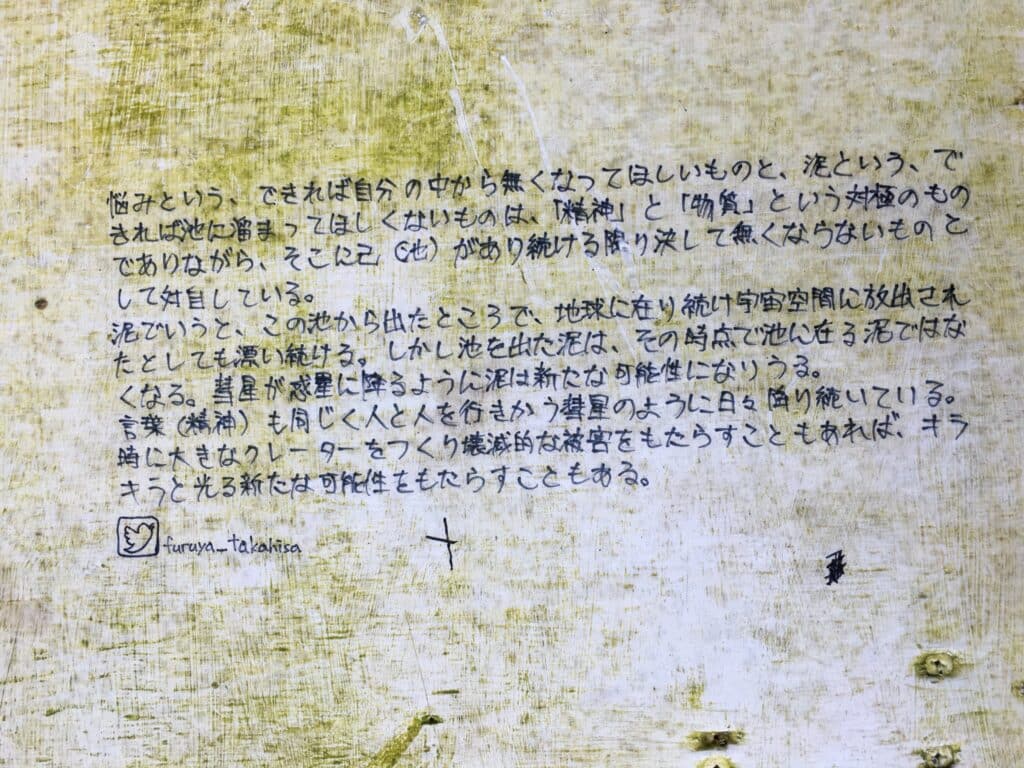 悩みという、できれば自分の中から無くなってほしいものと、泥という、で
きれば池に溜まってほしくないものは、「精神」と「物質」という対極のもの
でありながら、そこに己（池）があり続ける限り決して無くならないものと
して対自している。
泥でいうと、この池から出たところで、地球に在り続け宇宙空間に放出され
たとしても漂い続ける。しかし池を出た泥は、その時点で池に在る泥ではな
くなる。彗星が惑星に降るように泥は新たな可能性になりうる。
言葉（精神）も同じく人と人を行きかう彗星のように日々降り続いている。
時に大きなクレーターをつくり壊滅的な被害をもたらすこともあれば、キラ
キラと光る新たな可能性をもたらすこともある。
furuya_takahisa